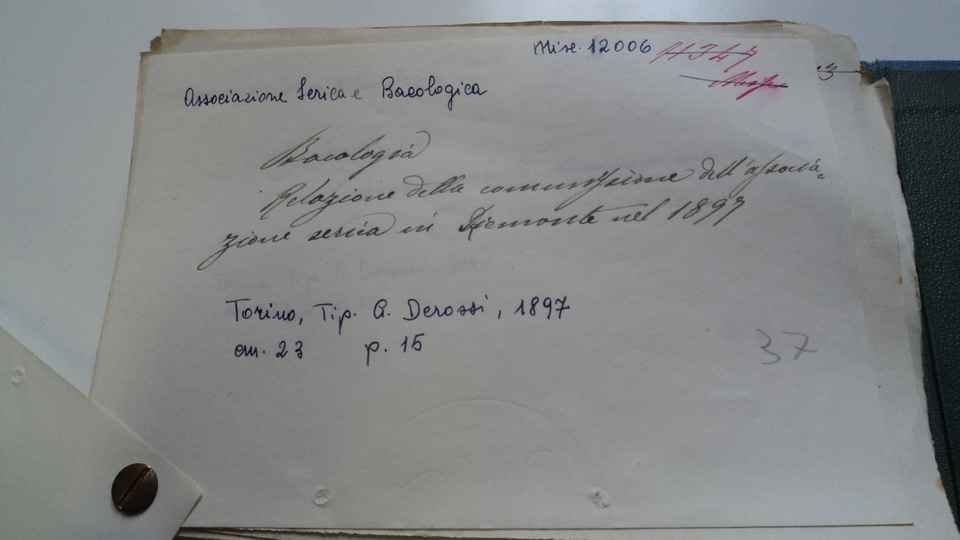 Misc. 12006
Associazione Serica e Bacologica
Bacologia
Relazione della commissione dell'associa=
zione serica in Piemonte nel 1897
Torino, Tip. G. Derossi, 1897
cm. 23 p. 15
37